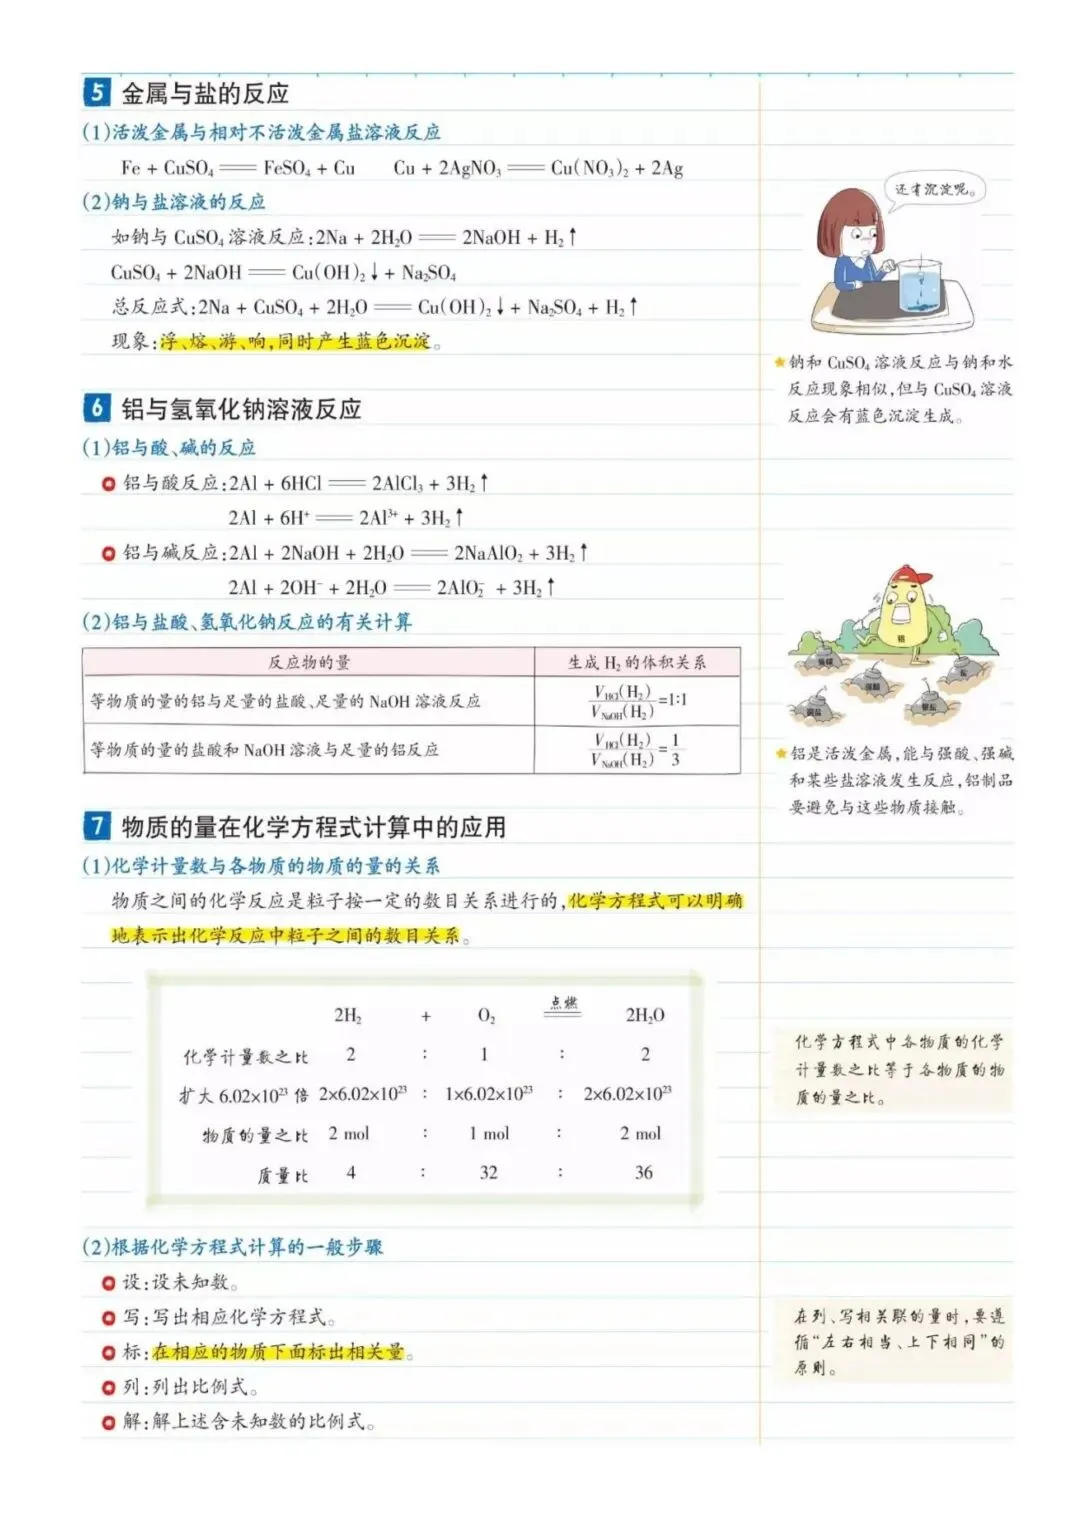 5 金属与盐的反应
(1)活泼金属与相对不活泼金属盐溶液反应
Fe + CuSO₄ ══ FeSO₄ + Cu Cu + 2AgNO₃ ══ Cu(NO₃)₂ + 2Ag
(2)钠与盐溶液的反应
如钠与 CuSO₄ 溶液反应:2Na + 2H₂O ══ 2NaOH + H₂↑
CuSO₄ + 2NaOH ══ Cu(OH)₂↓ + Na₂SO₄
总反应式:2Na + CuSO₄ + 2H₂O ══ Cu(OH)₂↓ + Na₂SO₄ + H₂↑
现象:浮、熔、游、响,同时产生蓝色沉淀。
还有沉淀呢。
★钠和 CuSO₄ 溶液反应与钠和水
反应现象相似,但与 CuSO₄ 溶液
反应会有蓝色沉淀生成。
6 铝与氢氧化钠溶液反应
(1)铝与酸、碱的反应
铝与酸反应:2Al + 6HCl ══ 2AlCl₃ + 3H₂↑
2Al + 6H⁺ ══ 2Al³⁺ + 3H₂↑
铝与碱反应:2Al + 2NaOH + 2H₂O ══ 2NaAlO₂ + 3H₂↑
2Al + 2OH⁻ + 2H₂O ══ 2AlO₂⁻ + 3H₂↑
(2)铝与盐酸、氢氧化钠反应的有关计算
反应物的量 生成 H₂ 的体积关系
等物质的量的铝与足量的盐酸、足量的 NaOH 溶液反应 V_HCl(H₂)/V_NaOH(H₂)=1:1
等物质的量的盐酸和 NaOH 溶液与足量的铝反应 V_HCl(H₂)/V_NaOH(H₂)=1/3
铝
强碱
强酸
盐
铜盐
银盐
★铝是活泼金属,能与强酸、强碱
和某些盐溶液发生反应,铝制品
要避免与这些物质接触。
7 物质的量在化学方程式计算中的应用
(1)化学计量数与各物质的物质的量的关系
物质之间的化学反应是粒子按一定的数目关系进行的,化学方程式可以明确
地表示出化学反应中粒子之间的数目关系。
点燃
2H₂ + O₂ ══ 2H₂O
化学计量数之比 2 : 1 : 2
扩大 6.02×10²³ 倍 2×6.02×10²³ : 1×6.02×10²³ : 2×6.02×10²³
物质的量之比 2 mol : 1 mol : 2 mol
质量比 4 : 32 : 36
化学方程式中各物质的化学
计量数之比等于各物质的物
质的量之比。
(2)根据化学方程式计算的一般步骤
设:设未知数。
写:写出相应化学方程式。
标:在相应的物质下面标出相关量。
列:列出比例式。
解:解上述含未知数的比例式。
在列、写相关联的量时,要遵
循“左右相当、上下相同”的
原则。